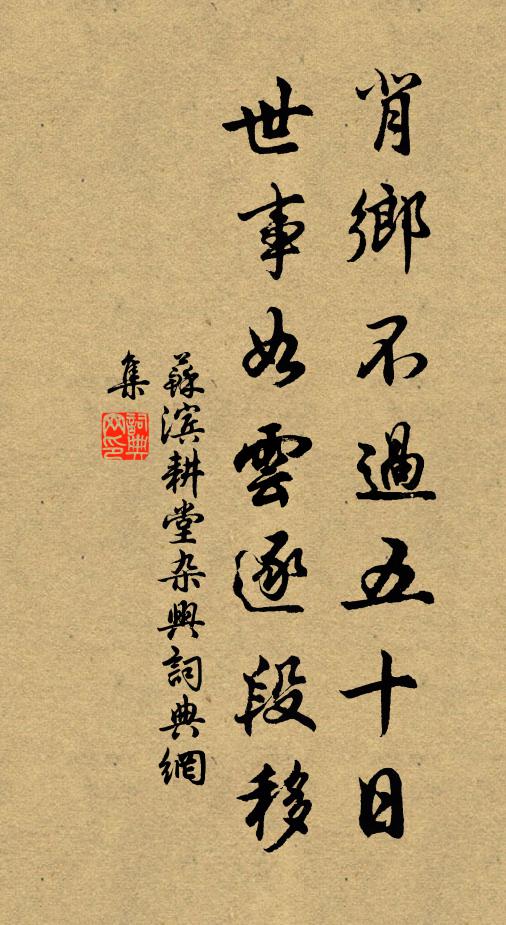 肯鄉不過五十日
世事如雲逐段移
蘇滨耕堂杂興詞典網
集
詞典
网印